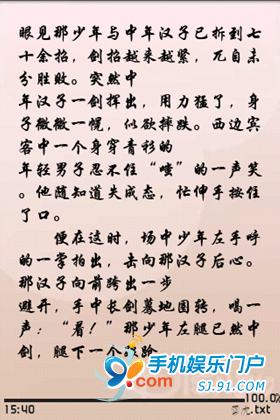 眼见那少年与中年汉子已拆到七
十余招，剑招越来越紧，兀自未
分胜败。突然中
年汉子一剑挥出，用力猛了，身
子微微一幌，似欲摔跌。西边宾
客中一个身穿青衫的
年轻男子忍不住“嗤”的一声笑
。他随知道失成态，忙伸手按住
了口。
便在这时，场中少年左手呼
的一掌拍出，击向那汉子后心。
那汉子向前跨出一步
避开，手中长剑蓦地圆转，喝一
声：“着！”那少年左腿已然中
剑，腿下一个
手机娱乐门户
SJ.91.COM
15:40
100.0
.txt